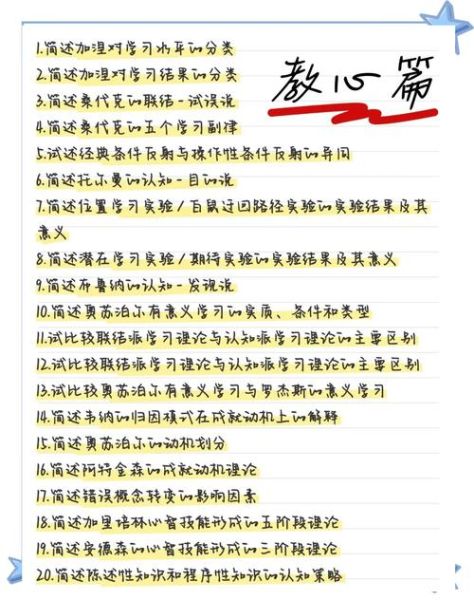 教心篇
1.简述加涅对学习水平的分类
2.简述加涅对学习结果的分类
3.简述桑代克的联结-试误说
4.简述桑代克的五个学习副律
5.试述经典条件反射与操作性条件反射的异同
6.简述托尔曼的认知-目的说
7.简述位置学习实验/白鼠迂回路径实验的实验结果及其
意义
8.简述潜在学习实验/期待实验的实验结果及其意义
9.简述布鲁纳的认知-发现说
10.简述奥苏泊尔有意义学习的实质、条件和类型
11.试比较联结派学习理论与认知派学习理论的主要区别
12.试比较联结派学习理论与认知派学习理论的主要区别
13.试比较奥苏泊尔有意义学习与罗杰斯的意义学习
14.简述韦纳的归因模式在成就动机上的解释
15.简述奥苏泊尔的动机划分
16.简述阿特金森的成就动机理论
17.简述错误概念转变的影响因素
18.简述加里培林心智技能形成的五阶段理论
19.简述安德森的心智技能形成的三阶段理论
20.简述陈述性知识和程序性知识的认知策略